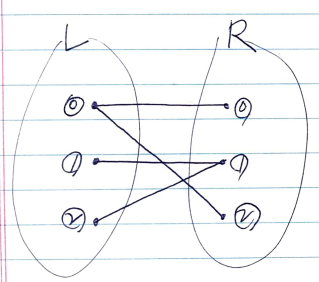 L R
0 0
1 1
2 2